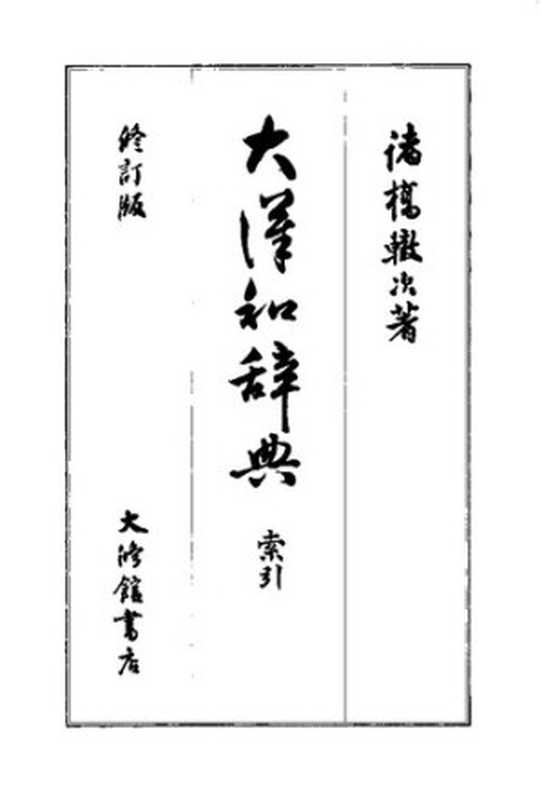 諸橋轍次著
大漢和辞典
索引
修訂版
大修館書店